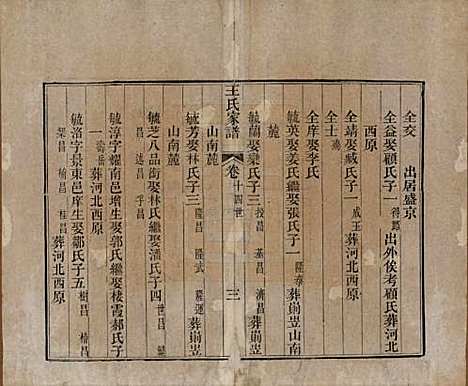 全交　出居盛京
全益娶顧氏子一　得路　出外俟考顧氏葬河北
西原
全靖娶臧氏子一　咸玉　葬河北西原
全士
全庠娶李氏
毓英娶姜氏繼娶張氏子一　隆泰　葬崮岦山南
麓
毓蘭娶欒氏子三　投昌　基昌　清昌　葬崮岦
王氏家譜　卷　十四世　三
山南麓
毓芳娶林氏子三　隆昌　隆武　隆運　葬崮岦
山南麓
毓芝八品銜娶林氏繼娶潘氏子四　世昌
盛昌　孚昌
毓淳字耀南邑增生娶郭氏繼娶棲霞郝氏子
一　壽岳　葬河北西原
毓洛字景東邑庠生娶鄒氏子五　樹昌　椿昌
榮昌　楡昌　桂昌　葬河北西原